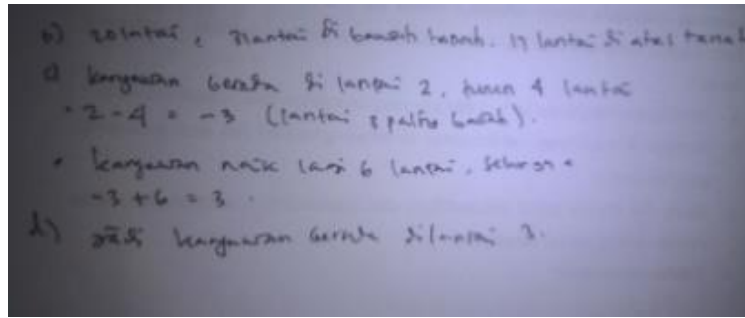 b) 20 lantai, 3 lantai di bawah tanah. 17 lantai di atas tanah
c) karyawan berada di lantai 2, turun 4 lantai
= 2 - 4 = -3 (lantai 3 paling bawah).
• karyawan naik lagi 6 lantai, sehingga
-3 + 6 = 3.
d) Jadi karyawan berada dilantai 3.